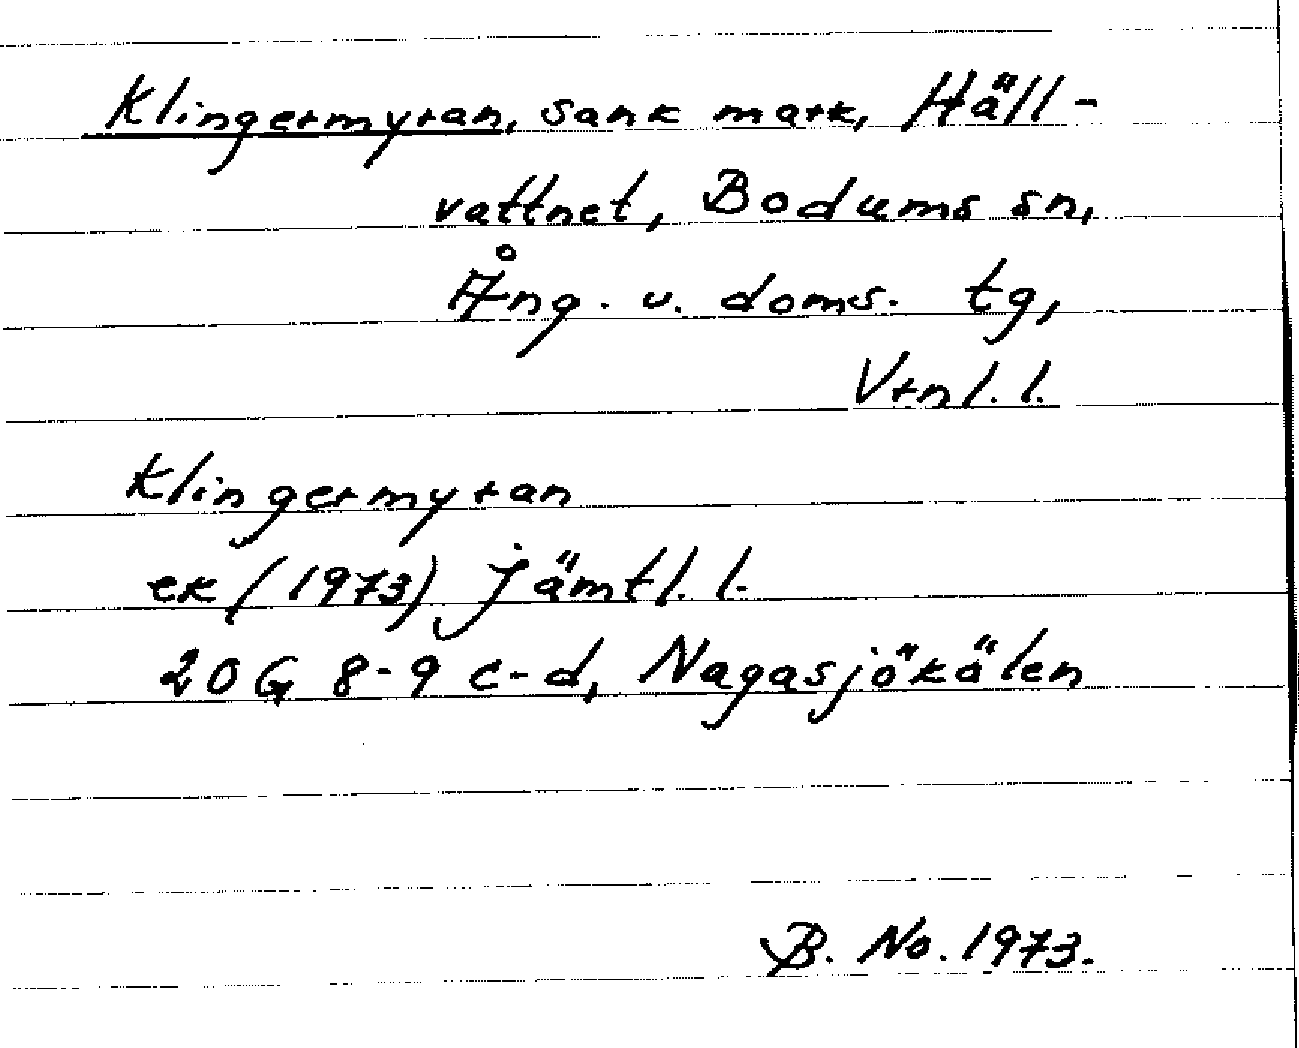 Klingermyran, sank mark, Häll-
vattnet, Bodums sn,
Ång. v. doms. tg,
Vrnl. l.
Klingermyran
ek (1973) Jämtl. l.
20 G 8-9 c-d, Nagasjökälen
B. No. 1973.